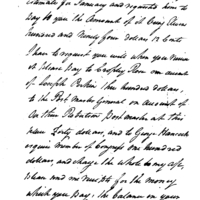 Estimate for January and requested him to
Pay to you the Amount of it being Seven
hundred and Ninety four dollars 12 Cents
I have to request you will when you receive
it, please Pay to on account
of Joseph Perkins One hundred dollars,
to the Post Master General on account of
Robertson Post master at this
place Forty dollars, and to George Hancock
esquire Member of Congress One hundred
dollars, and charge the whole to my a/c,
and me receipts for the money
which you Pay; the balance on your